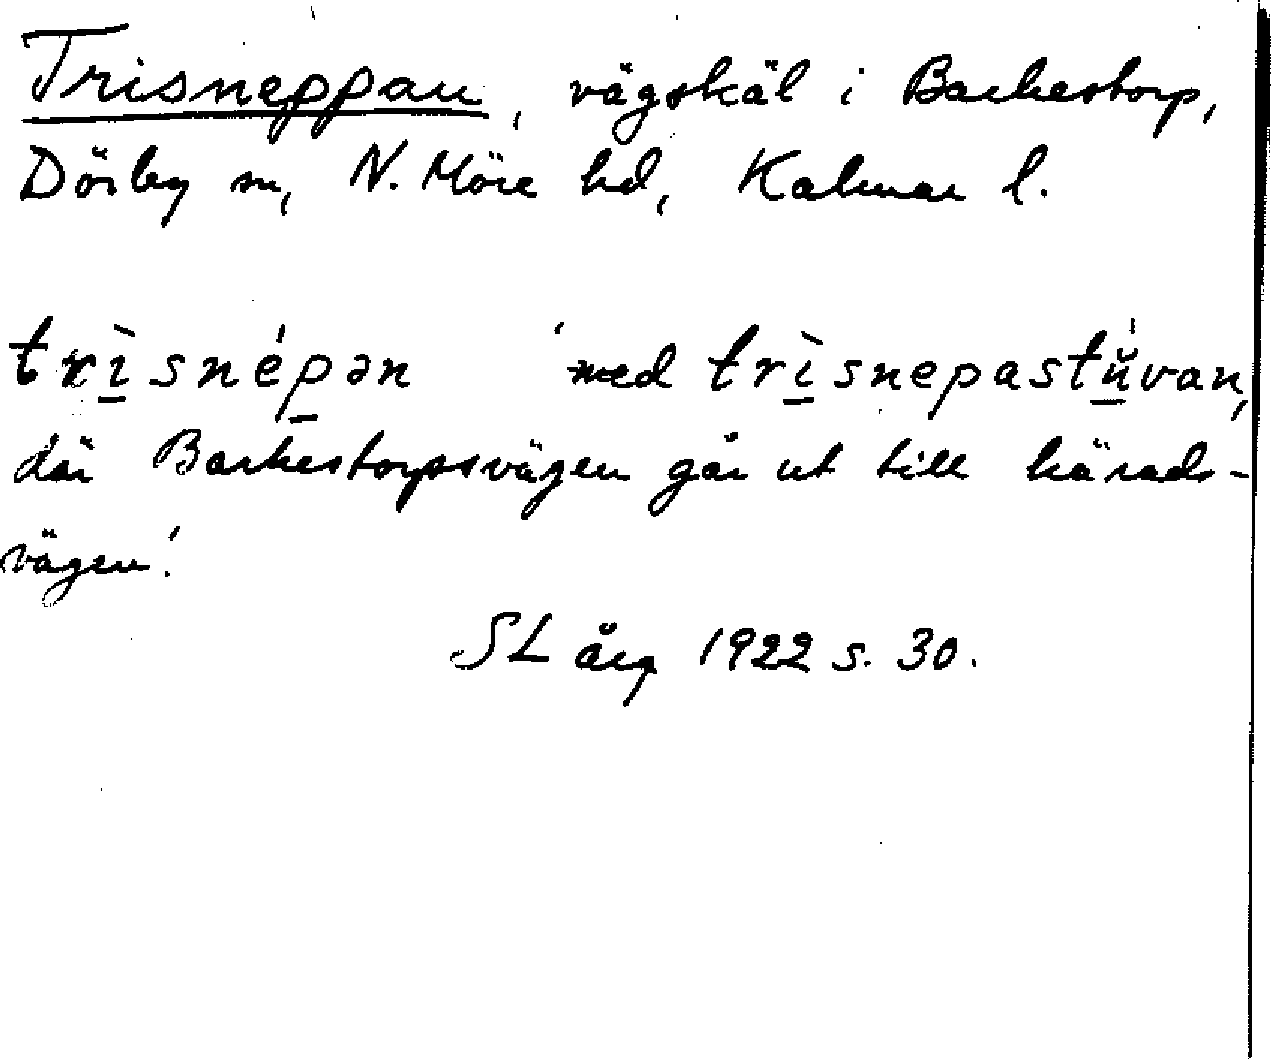 Trisneppan, vägskäl i Barkestorp,
Dörby sn, N. Möre hd, Kalmar l.
trìsnépən 'med trìsnepastŭ́van,
där Barkestorpsvägen går ut till härads-
vägen'.
SL årg 1922 s. 30.